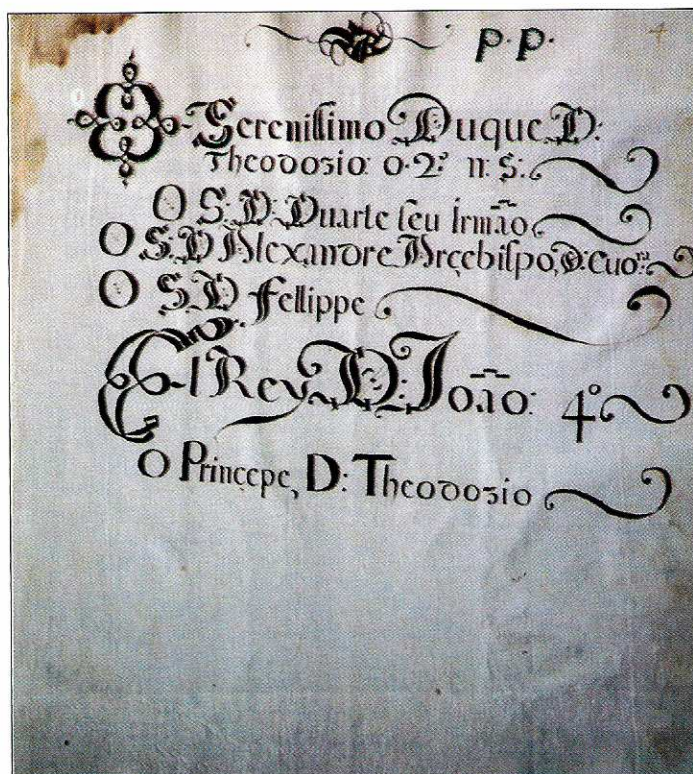 P. P. 4
O Serenissimo Duque D:
Theodozio o.2º n: S:
O S: D: Duarte seu Irmão
O S: D Alexandre Arçebispo, D: Euoª
O S D Fellippe
El Rey D: João: 4º
O Prinçepe, D: Theodozio